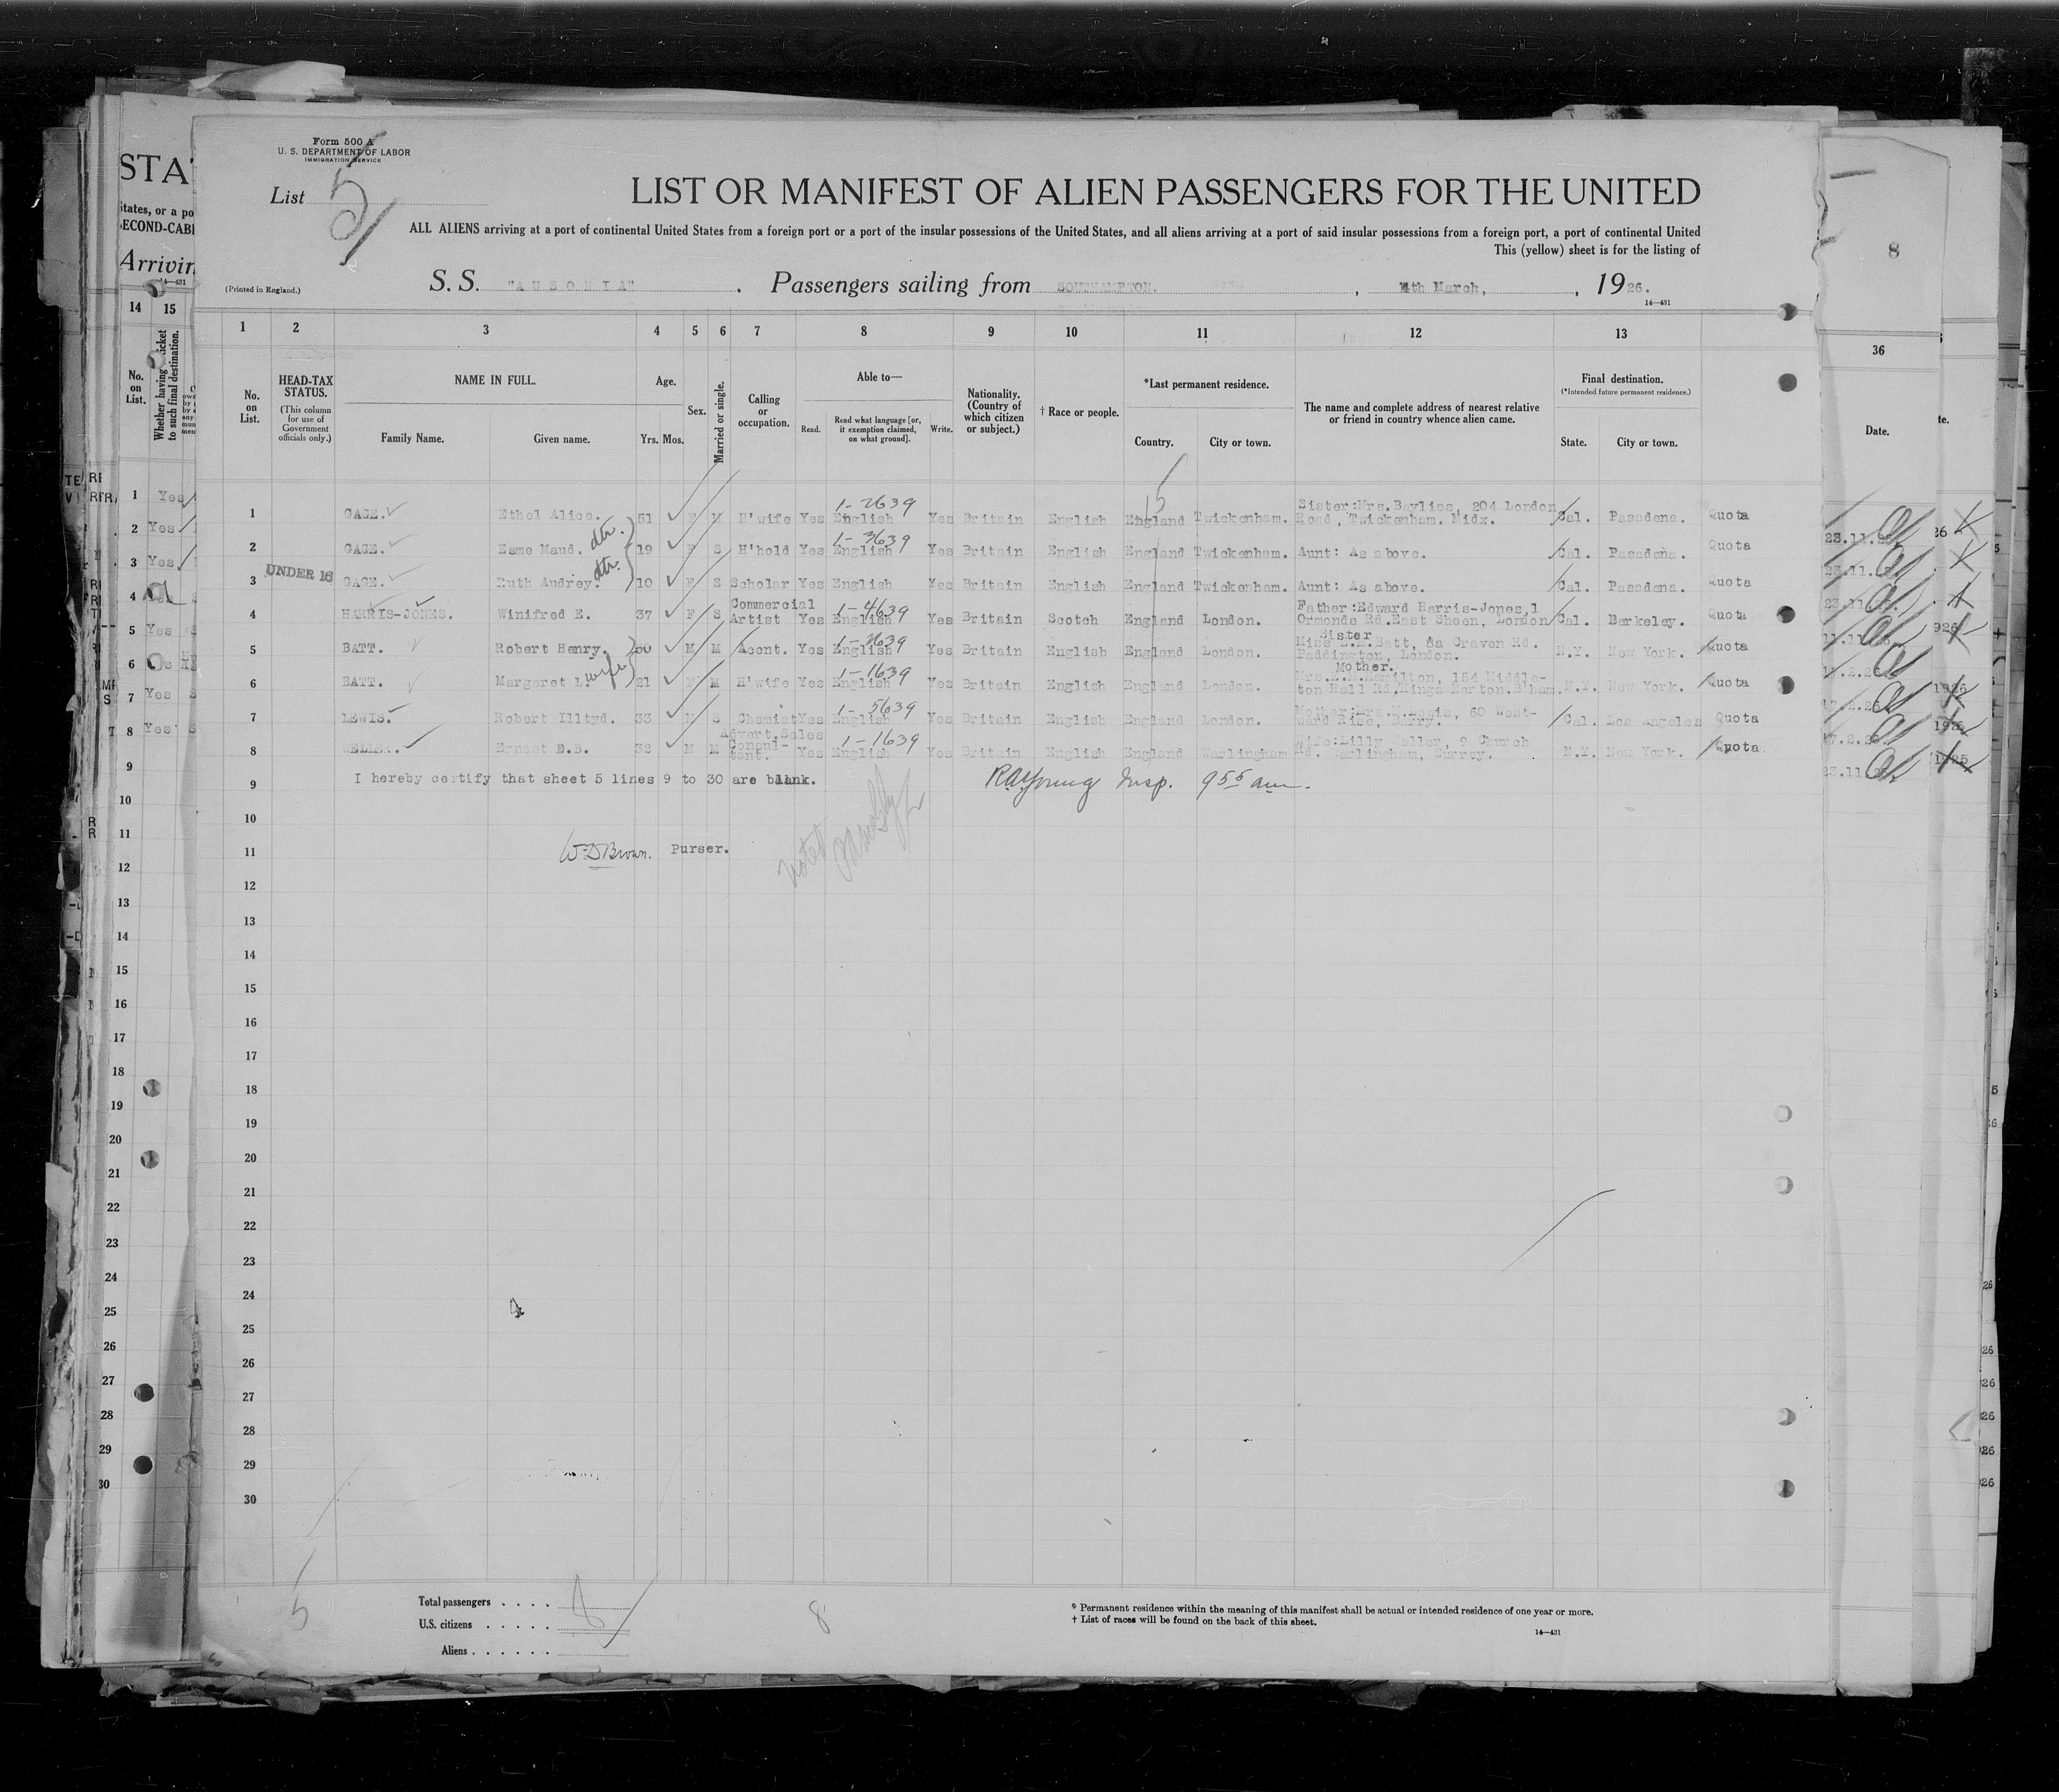 Form 500 A
U. S. DEPARTMENT OF LABOR
IMMIGRATION SERVICE
List 5
LIST OR MANIFEST OF ALIEN PASSENGERS FOR THE UNITED
ALL ALIENS arriving at a port of continental United States from a foreign port or a port of the insular possessions of the United States, and all aliens arriving at a port of said insular possessions from a foreign port, a port of continental United
This (yellow) sheet is for the listing of
(Printed in England.)
S. S. "AUSONIA" . Passengers sailing from SOUTHAMPTON. , 4th March, , 1926.
14—431
1 2 3 4 5 6 7 8 9 10 11 12 13
No. on List.
HEAD-TAX STATUS.
(This column for use of Government officials only.)
NAME IN FULL.
Family Name. Given name.
Age.
Yrs. Mos.
Sex.
Married or single.
Calling or occupation.
Able to—
Read. Read what language [or, if exemption claimed, on what ground]. Write.
Nationality. (Country of which citizen or subject.)
† Race or people.
*Last permanent residence.
Country. City or town.
The name and complete address of nearest relative or friend in country whence alien came.
Final destination.
(*Intended future permanent residence.)
State. City or town.
1 GAGE. Ethel Alice. 51 F M H'wife Yes 1-2639 English Yes Britain English England Twickenham. Sister:Mrs.Bayliss, 204 London Road, Twickenham. Midx. Cal. Pasadena. Quota
2 GAGE. Esme Maud. dtr. 19 F S H'hold Yes 1-3639 English Yes Britain English England Twickenham. Aunt: As above. Cal. Pasadena. Quota
UNDER 16
3 GAGE. Ruth Audrey. dtr. 10 F S Scholar Yes English Yes Britain English England Twickenham. Aunt: As above. Cal. Pasadena. Quota
4 HARRIS-JONES. Winifred E. 37 F S Commercial Artist Yes 1-4639 English Yes Britain Scotch England London. Father:Edward Harris-Jones,1 Ormonde Rd.East Sheen, London Cal. Berkeley. Quota
5 BATT. Robert Henry. M M Accnt. Yes English Yes Britain English England London. Sister Miss Batt, 8a Craven Rd. Paddington, London. N.Y. New York. Quota
6 BATT. Margaret L. wife 21 F M H'wife Yes 1-1639 English Yes Britain English England London. Mother. Hamilton, 154 Middleton Hall Rd.Kings Norton.B'ham. N.Y. New York. Quota
7 LEWIS. Robert Illtyd. 33 M S Chemist Yes 1-5639 English Yes Britain English England London. Mother:Mrs. Lewis, 60 Westward Rise, Barry. Cal. Los Angeles Quota
8 WELLER. Ernest E.B. 32 M M Advert.Sales Consultant. Yes 1-1639 English Yes Britain English England Warlingham Wife:Lilly Weller, 9 Church Rd. Warlingham, Surrey. N.Y. New York. Quota
9 I hereby certify that sheet 5 lines 9 to 30 are blank. Insp. 9 55 am.
10
11 W D Brown. Purser.
Noted
12
13
14
15
16
17
18
19
20
21
22
23
24
25
26
27
28
29
30
Total passengers . . . . 8
U.S. citizens . . . . .
Aliens . . . . . .
5
8
* Permanent residence within the meaning of this manifest shall be actual or intended residence of one year or more.
† List of races will be found on the back of this sheet.
14—431
8
36
Date.